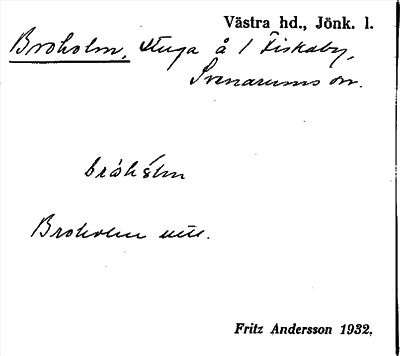 Västra hd., Jönk. l.
Broholm, stuga å 1 Fiskaby,
Svenarums sn.
bróhólm
Broholm uttl.
Fritz Andersson 1932.